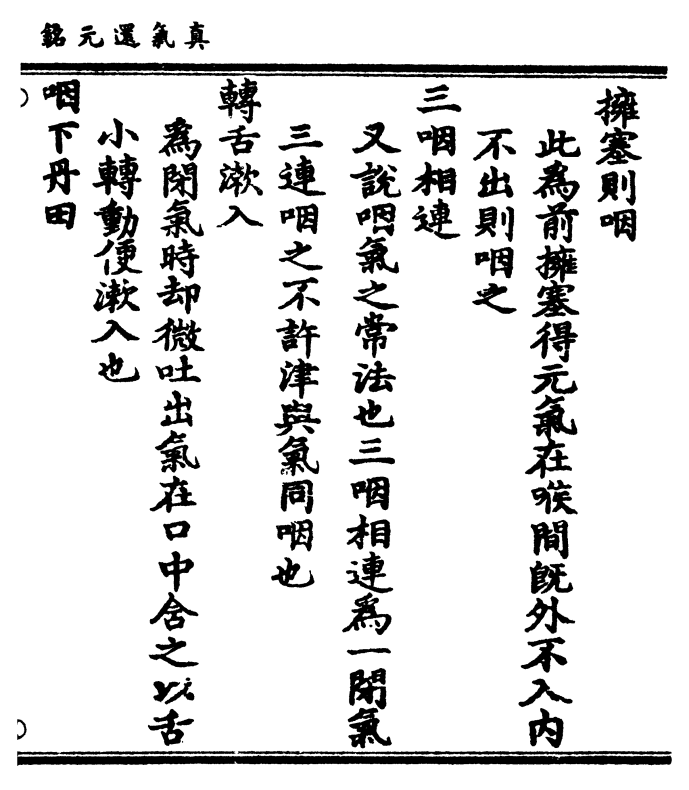 真氣還元銘
擁塞則咽
此為前擁塞得元氣在喉間既外不入內
不出則咽之
三咽相連
又說咽氣之常法也三咽相連爲一閉氣
三連咽之不許津與氣同咽也
轉舌漱入
爲閉氣時却微吐出氣在口中含之以舌
小轉動便漱入也
咽下丹田